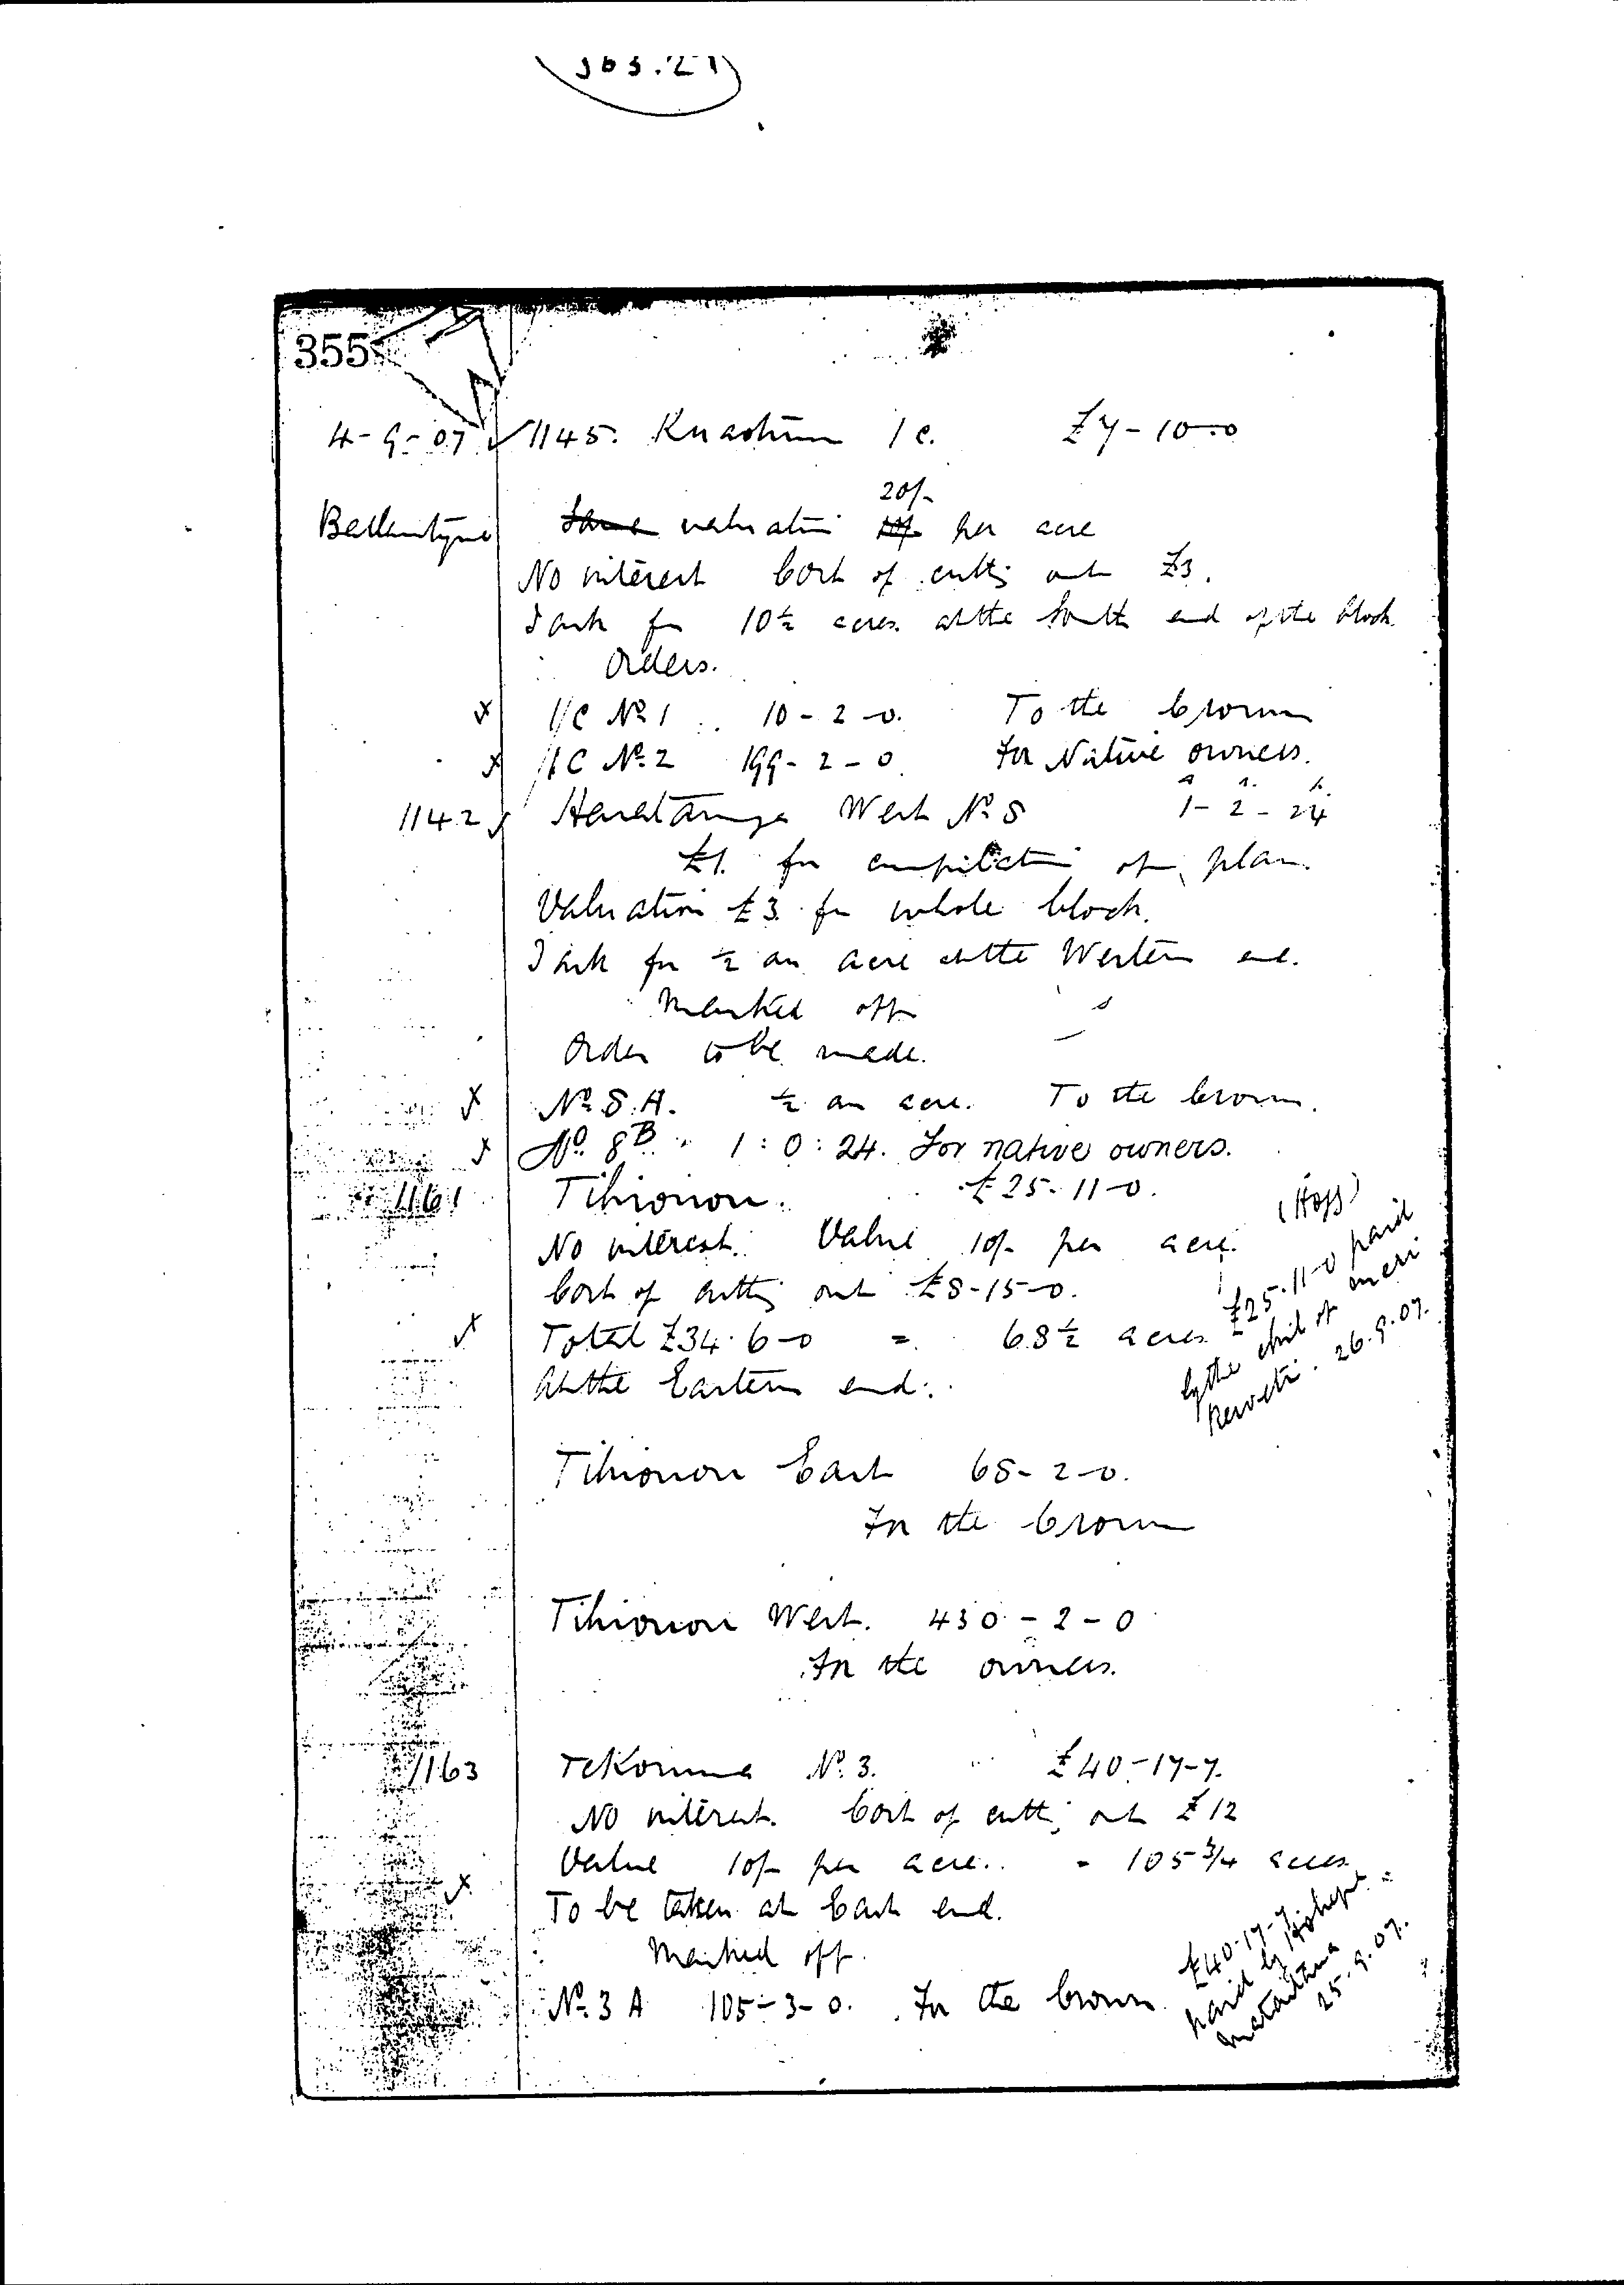 355
4-9-07 1145. Kuaotunu 1C. £7-10-0
20/-
Ballantyne Same valuation 10/- per acre
No interest Cost of cutting out £3.
I ask for 10½ acres at the South end of the block.
Orders.
1C No 1 10-2-0. To the Crown
1C No. 2 199-2-0 For Native owners.
a. r. p.
1142 Harataunga West No 8 1-2-24
£1. for compilation of plan.
Valuation £3 for whole block.
I ask for ½ an acre at the Western end.
Marked off
Order to be made.
No 8.A. ½ an acre. To the Crown.
No. 8B 1:0:24. For native owners.
1161 Tihiouou. £25-11-0.
No interest. Value 10/- per acre.
Cost of cutting out £8-15-0.
Total £34.6-0 = 68½ acres
At the Eastern end.
£25.11-0 paid
by the child of Meri
26.9.07.
Tihiouou East 68-2-0.
For the Crown
Tihiouou West. 430-2-0
For the owners.
1163 Te Kouma No. 3. £40-17-7.
No interest. Cost of cutting out £12
Value 10/- per acre.. = 105¾ acres
To be taken at East end.
Marked off.
No. 3A 105-3-0. For the Crown
£40-17-7
paid by
25.9.07.